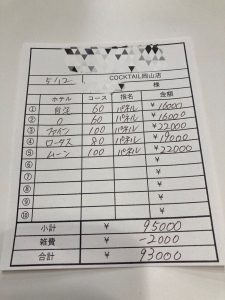 COCKTAIL岡山店
5/12 様
ホテル コース 指名 金額
① 60 パネル ¥16000
② O 60 パネル ¥16000
③ ファイン 100 パネル ¥22000
④ ロータス 80 パネル ¥19000
⑤ ムーン 100 パネル ¥22000
⑥
⑦
⑧
⑨
⑩
小計 ¥ 95000
雑費 ¥ -2000
合計 ¥ 93000